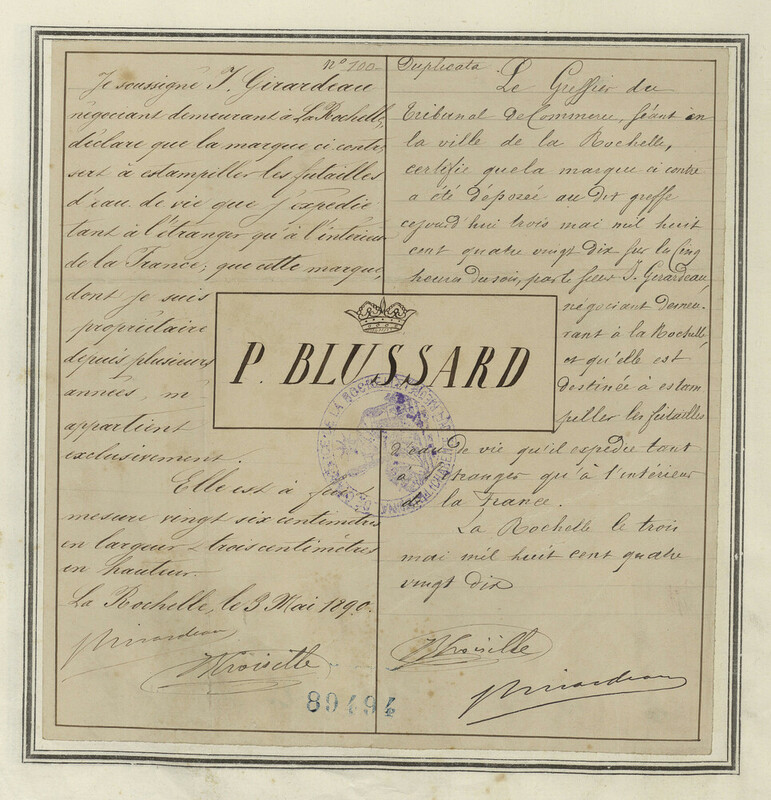 Nº 100
Je soussigné J. Girardeau
négociant demeurant à La Rochelle,
déclare que la marque ci contre
sert à estampiller les futailles
d'eau de vie que j'expédie
tant à l'étranger qu'à l'intérieur
de la France; que cette marque,
dont je suis
propriétaire
depuis plusieurs
années, m'
appartient
exclusivement.
Elle est à feu,
mesure vingt six centimètres
en largeur & trois centimètres
en hauteur.
La Rochelle, le 3 Mai 1890.
Girardeau
P. BLUSSARD
Duplicata
Le Greffier du
Tribunal de Commerce, séant en
la ville de la Rochelle,
certifie que la marque ci contre
a été déposée au dit greffe
cejourd'hui trois mai mil huit
cent quatre vingt dix sur les cinq
heures du soir, par le sieur J. Girardeau,
négociant demeu-
rant à la Rochelle,
et qu'elle est
destinée à estam
piller les futailles
d'eau de vie qu'il expédie tant
à l'étranger qu'à l'intérieur
de la France.
La Rochelle le trois
mai mil huit cent quatre
vingt dix
Girardeau
89494